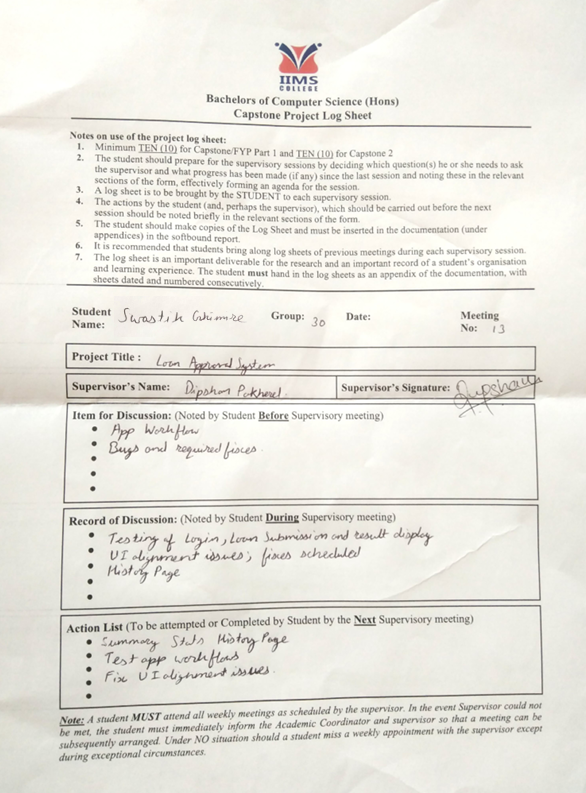 IIMS
COLLEGE
Bachelors of Computer Science (Hons)
Capstone Project Log Sheet
Notes on use of the project log sheet:
1. Minimum TEN (10) for Capstone/FYP Part 1 and TEN (10) for Capstone 2
2. The student should prepare for the supervisory sessions by deciding which question(s) he or she needs to ask
the supervisor and what progress has been made (if any) since the last session and noting these in the relevant
sections of the form, effectively forming an agenda for the session.
3. A log sheet is to be brought by the STUDENT to each supervisory session.
4. The actions by the student (and, perhaps the supervisor), which should be carried out before the next
session should be noted briefly in the relevant sections of the form.
5. The student should make copies of the Log Sheet and must be inserted in the documentation (under
appendices) in the softbound report.
6. It is recommended that students bring along log sheets of previous meetings during each supervisory session.
7. The log sheet is an important deliverable for the research and an important record of a student's organisation
and learning experience. The student must hand in the log sheets as an appendix of the documentation, with
sheets dated and numbered consecutively.
Student Name: Swastik Ghimire Group: 30 Date: Meeting No: 13
Project Title : Loan Approval System
Supervisor's Name: Dipshan Pokherel Supervisor's Signature: Dipshan
Item for Discussion: (Noted by Student Before Supervisory meeting)
• App Workflow
• Bugs and required fixes.
•
•
•
Record of Discussion: (Noted by Student During Supervisory meeting)
• Testing of Login, Loan Submission and result display
• UI alignment issues; fixes scheduled
• History Page
•
•
Action List (To be attempted or Completed by Student by the Next Supervisory meeting)
• Summary Stats History Page
• Test app workflows
• Fix UI alignment issues.
•
•
Note: A student MUST attend all weekly meetings as scheduled by the supervisor. In the event Supervisor could not
be met, the student must immediately inform the Academic Coordinator and supervisor so that a meeting can be
subsequently arranged. Under NO situation should a student miss a weekly appointment with the supervisor except
during exceptional circumstances.